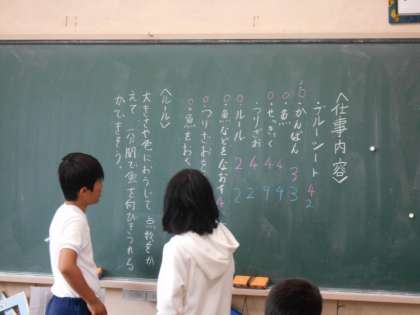 〈仕事内容〉
・ブルーシート 4 2
○・かんばん 3 3
○・魚 4 4
○・せっきゃく 4 9
・つりざお 4 2
○・ルール 2 2
○・魚などをなおす
○・つりざおを
○・魚をおく
〈ルール〉
大きさや色におうじて点数をか
えて、一分間で魚を何びきつれる
かできそう。